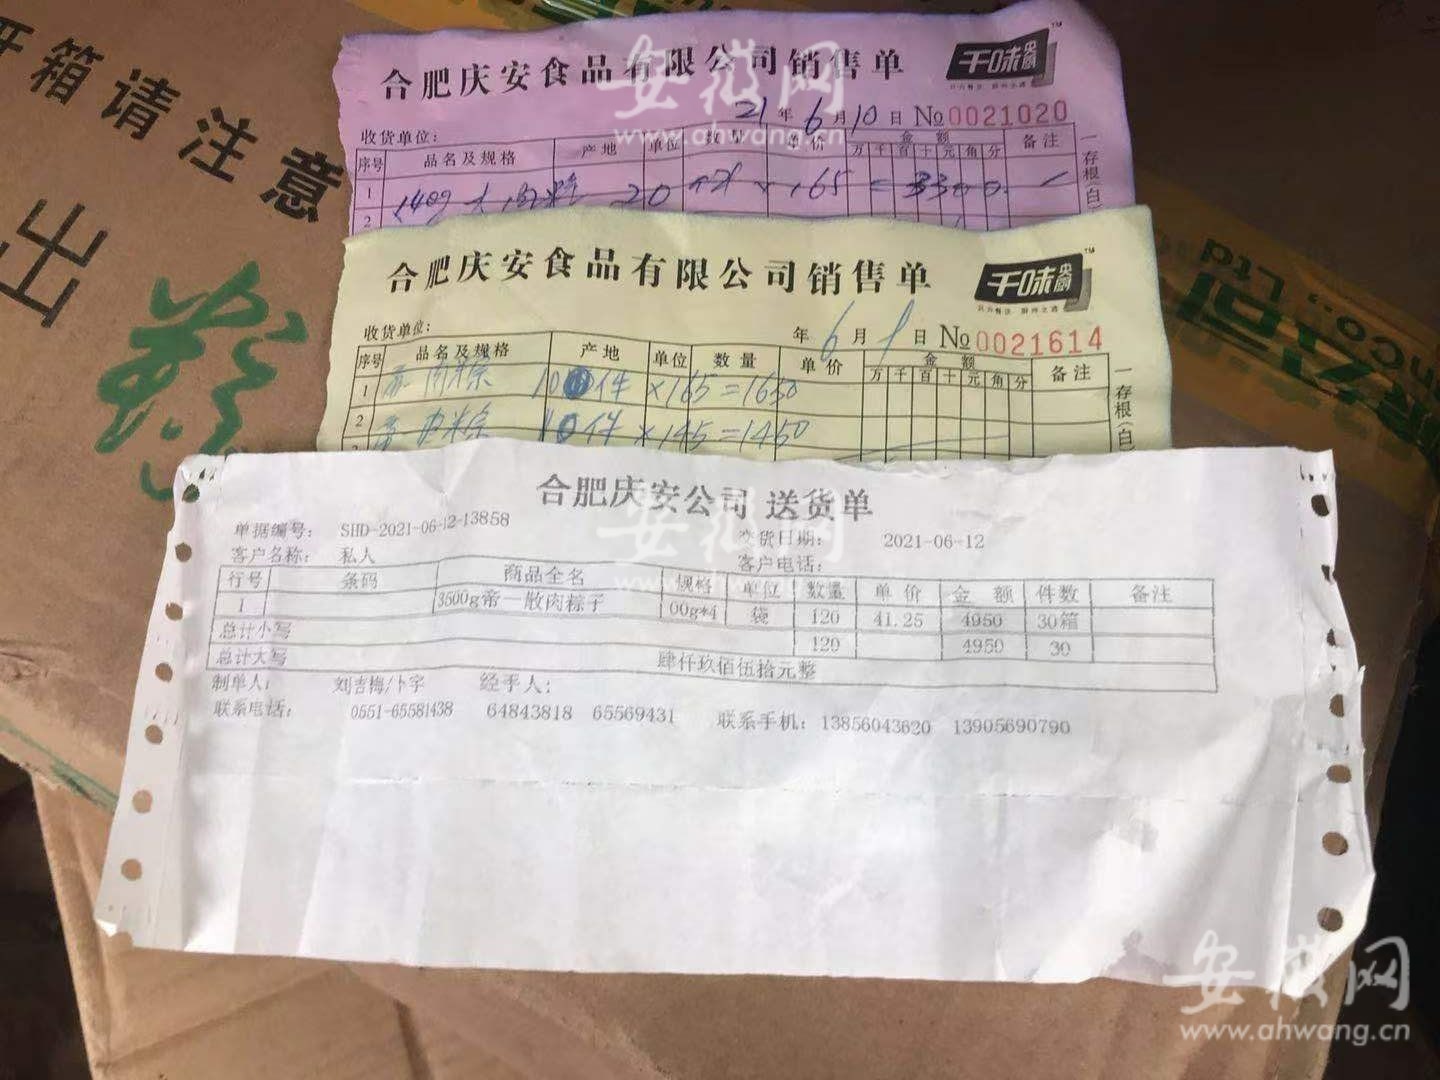 开箱请注意
出
合肥庆安食品有限公司销售单
千味央厨
21年6月10日 No 0021020
收货单位:
序号 品名及规格 产地 单位 数量 单价 金额 备注
万 千 百 十 元 角 分
1 140g大肉粽 20件 × 165 = 3300
2
一存根(白)
合肥庆安食品有限公司销售单
千味央厨
年6月1日 No 0021614
收货单位:
序号 品名及规格 产地 单位 数量 单价 金额 备注
万 千 百 十 元 角 分
1 肉粽 10件×165=1650
2 10件×145=1450
一存根(白)
合肥庆安公司 送货单
单据编号: SHD-2021-06-12-13858 交货日期: 2021-06-12
客户名称: 私人 客户电话:
行号 条码 商品全名 规格 单位 数量 单价 金额 件数 备注
1 3500g帝一散肉粽子 00g*4 袋 120 41.25 4950 30箱
总计小写 120 4950 30
总计大写 肆仟玖佰伍拾元整
制单人: 刘吉梅/卜宇 经手人:
联系电话: 0551-65581438 64843818 65569431 联系手机: 13856043620 13905690790
安徽网
www.ahwang.cn
安徽网
安徽网
www.ahwang.cn